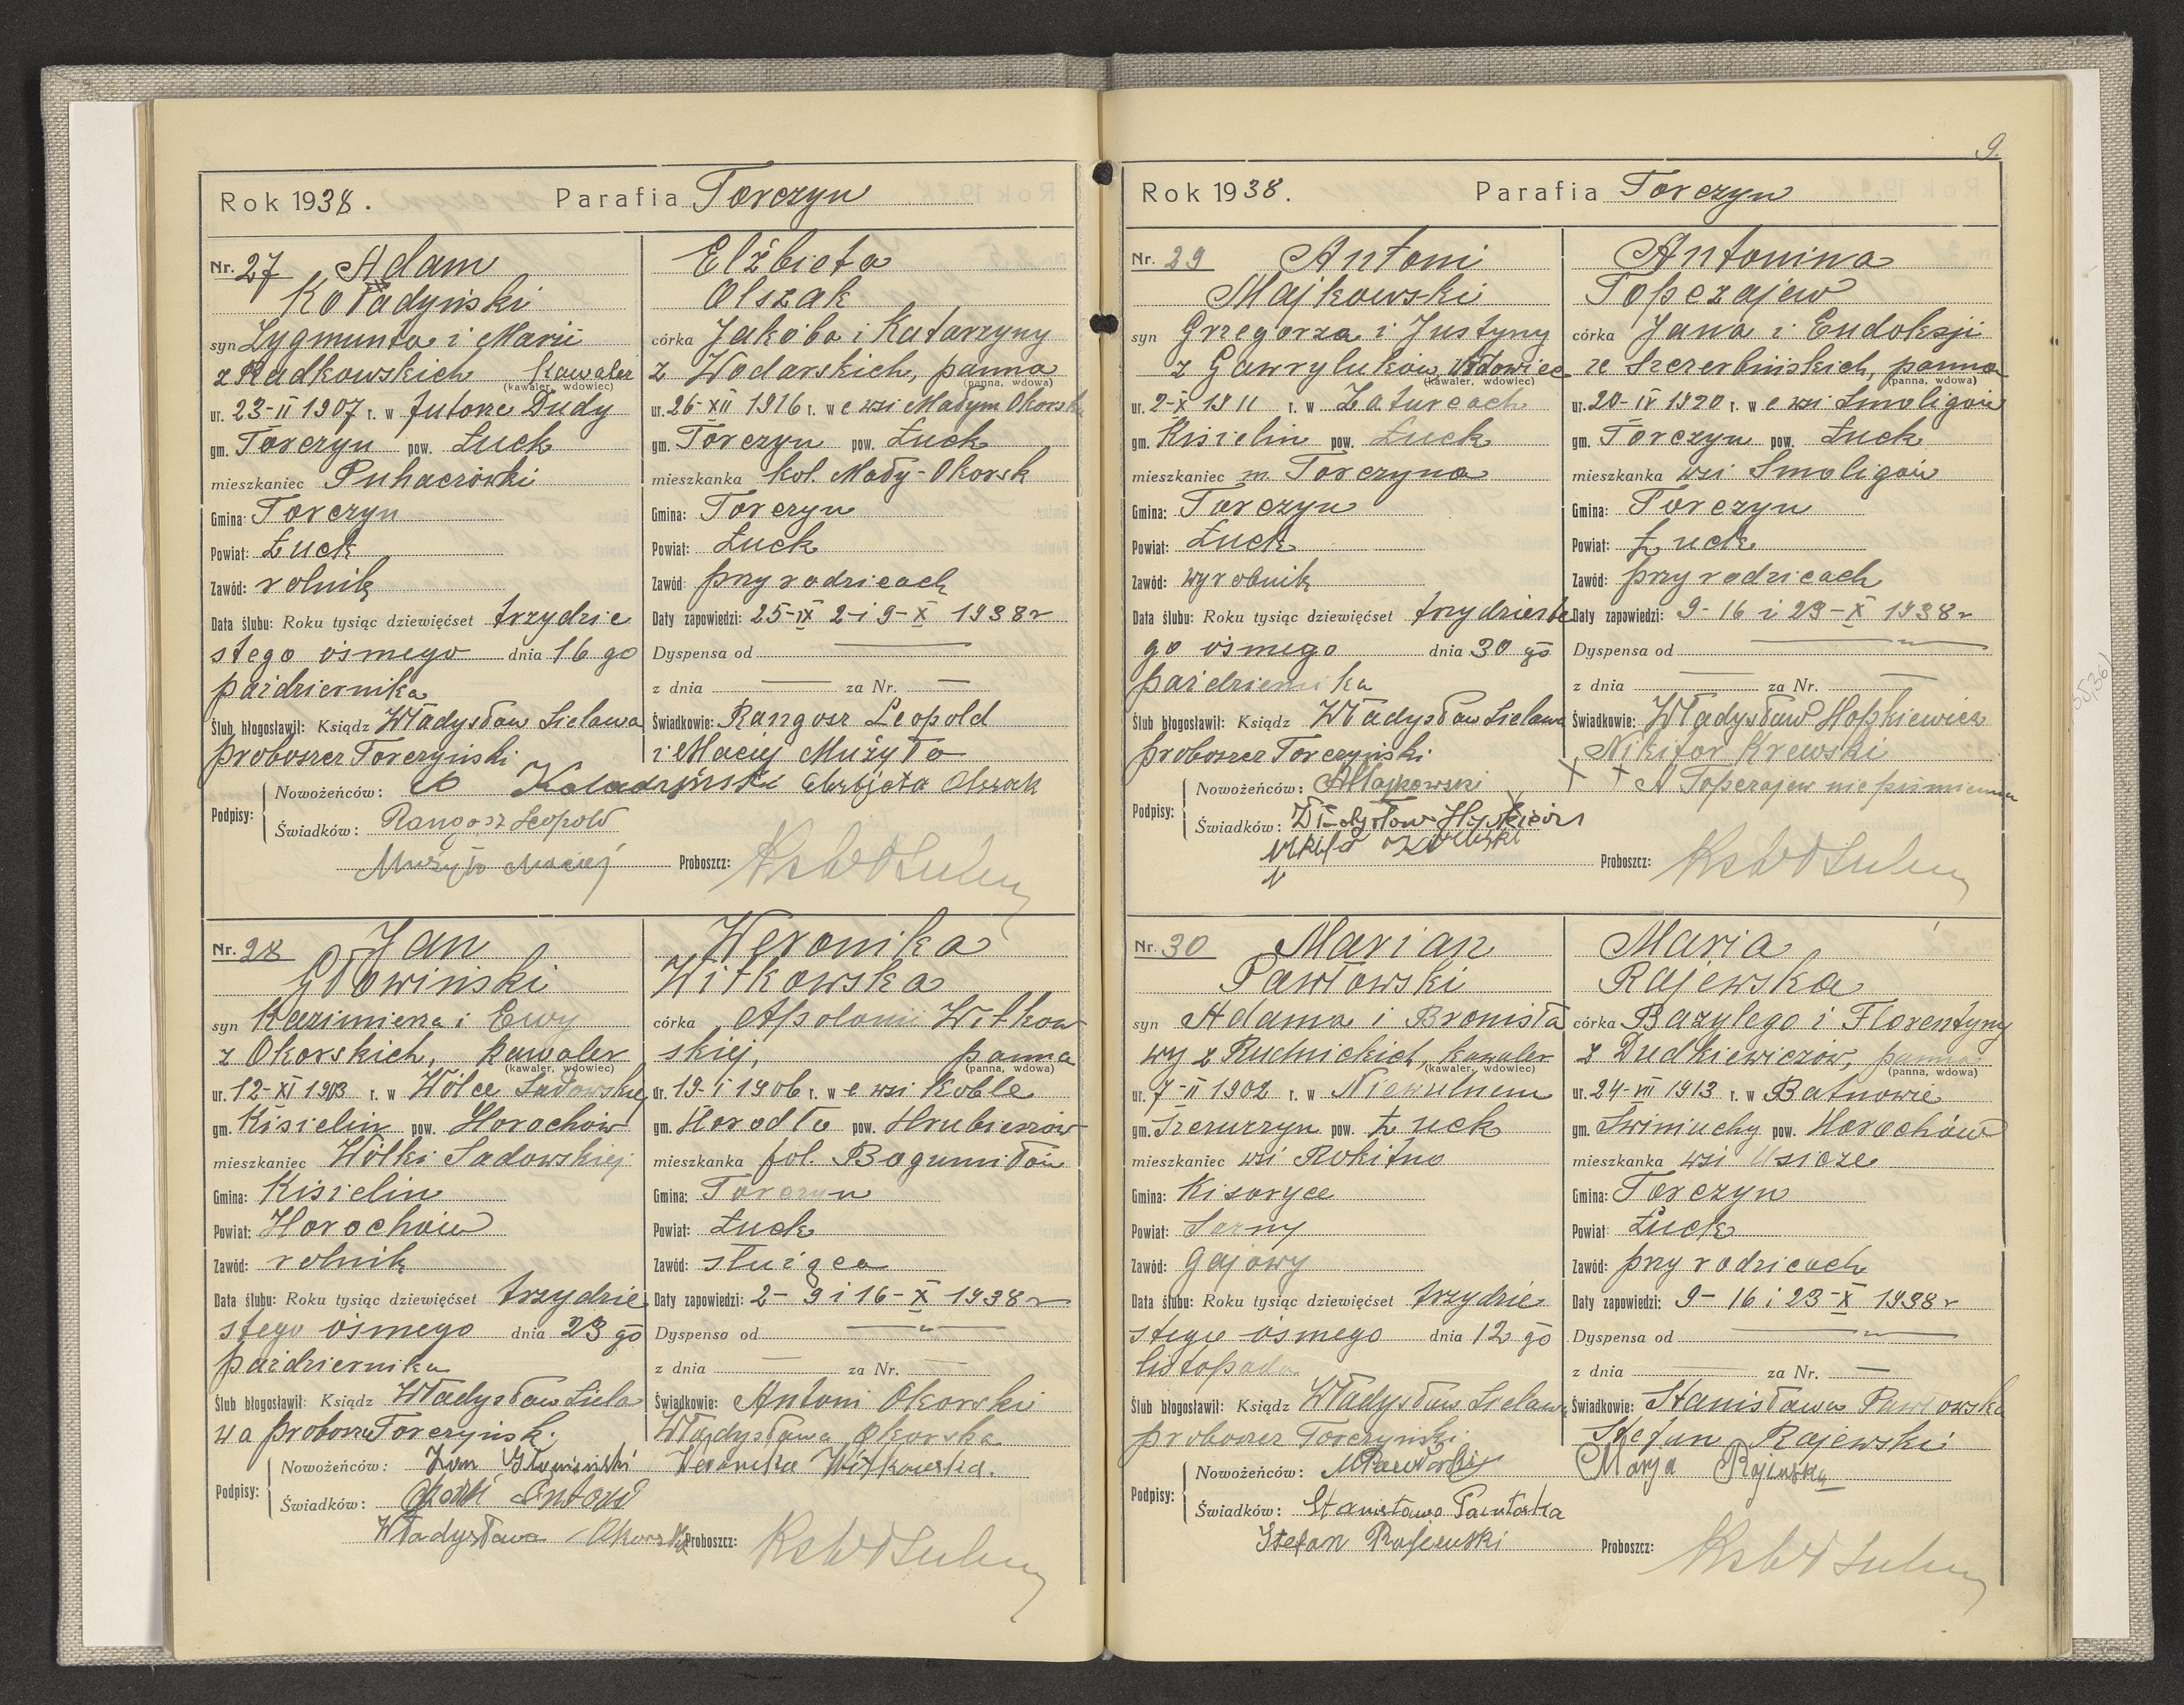 Rok 1938. Parafia Torczyn
Nr. 27 Adam
Kotadyński
syn Zygmunta i Marii
z Radkowskich kawaler
(kawaler, wdowiec)
ur. 23-II 1907 r. w futorze Dudy
gm. Torczyn pow. Łuck
mieszkaniec Puhaczówki
Gmina: Torczyn
Powiat: Łuck
Zawód: rolnik
Data ślubu: Roku tysiąc dziewięćset trzydzie
stego ósmego dnia 16 go
października
Ślub błogosławił: Ksiądz Władysław Sielawa
proboszcz Torczyński
Elżbieta
Olszak
córka Jakóba i Katarzyny
z Wodarskich, panna
(panna, wdowa)
ur. 26-XII 1916 r. w e wsi Małym Okorsk
gm. Torczyn pow. Łuck
mieszkanka kol. Mały-Okorsk
Gmina: Torczyn
Powiat: Łuck
Zawód: przy rodzicach
Daty zapowiedzi: 25-IX 2-i 9-X 1938 r
Dyspensa od —
z dnia — za Nr. —
Świadkowie: Rangosz Leopold
i Maciej Mużyło
Podpisy:
Nowożeńców: Koladzyński Elrbjeta Olszak
Świadków: Rangosz Leopold
Mużyło Maciej Proboszcz:
Nr. 28 Jan
Głowiński
syn Kazimierza i Ewy
z Okorskich, kawaler
(kawaler, wdowiec)
ur. 12-XI 1903 r. w Wólce Sadowskiej
gm. Kisielin pow. Horochów
mieszkaniec Wólki Sadowskiej
Gmina: Kisielin
Powiat: Horochów
Zawód: rolnik
Data ślubu: Roku tysiąc dziewięćset trzydzie
stego ósmego dnia 23 go
października
Ślub błogosławił: Ksiądz Władysław Siela
wa proboszcz Torczyńsk.
Weronika
Witkowska
córka Apolonii Witkow
skiej, panna
(panna, wdowa)
ur. 19-I 1906 r. w e wsi Koble
gm. Horodło pow. Hrubieszów
mieszkanka fol. Bogumiłów
Gmina: Torczyn
Powiat: Łuck
Zawód: służąca
Daty zapowiedzi: 2- 9 i 16-X 1938 r
Dyspensa od —
z dnia — za Nr. —
Świadkowie: Antoni Okorski
Władysława Okorska
Podpisy:
Nowożeńców: Jan Głowiński Weronika Witkowska.
Świadków: Antoni
Władysława Okorska Proboszcz:
9.
Rok 1938. Parafia Torczyn
Nr. 29 Antoni
Majkowski
syn Grzegorza i Justyny
z Gawryluków, wdowiec
(kawaler, wdowiec)
ur. 2-X 1911 r. w Zaturcach
gm. Kisielin pow. Łuck
mieszkaniec m. Torczyna
Gmina: Torczyn
Powiat: Łuck
Zawód: wyrobnik
Data ślubu: Roku tysiąc dziewięćset trzydzieste
go ósmego dnia 30 go
października
Ślub błogosławił: Ksiądz Władysław Sielawa
proboszcz Torczyński
Antonina
Topczajew
córka Jana i Eudoksji
ze Szczerbińskich, panna
(panna, wdowa)
ur. 20-IV 1920 r. w e wsi Smoligów
gm. Torczyn pow. Łuck
mieszkanka wsi Smoligów
Gmina: Torczyn
Powiat: Łuck
Zawód: przy rodzicach
Daty zapowiedzi: 9- 16 i 23-X 1938 r
Dyspensa od —
z dnia — za Nr. —
Świadkowie: Władysław Hopkiewicz
Nikifor Krewski
Podpisy:
Nowożeńców: AMajkowski + + A Topczajew niepiśmienna
Świadków:
Proboszcz:
Nr. 30 Marian
Pawłowski
syn Adama i Bronisła
wy z Rudnickich, kawaler
(kawaler, wdowiec)
ur. 7-II 1902 r. w Niewulnem
gm. Szczurzyn pow. Łuck
mieszkaniec wsi Rokitno
Gmina: Kisoryce
Powiat: Sarny
Zawód: gajowy
Data ślubu: Roku tysiąc dziewięćset trzydzie
stego ósmego dnia 12 go
listopada
Ślub błogosławił: Ksiądz Władysław Sielawa
proboszcz Torczyński
Maria
Rajewska
córka Bazylego i Florentyny
z Dudkiewiczów, panna
(panna, wdowa)
ur. 24-VII 1913 r. w Batnowie
gm. Świniuchy pow. Horochów
mieszkanka wsi Usicze
Gmina: Torczyn
Powiat: Łuck
Zawód: przy rodzicach
Daty zapowiedzi: 9- 16 i 23-X 1938 r
Dyspensa od —
z dnia — za Nr. —
Świadkowie: Stanisława Pawłowska
Stefan Rajewski
Podpisy:
Nowożeńców: MPawłowski Marja Rajewska
Świadków: Stanisława Pawłoska
Stefan Rajewski Proboszcz: